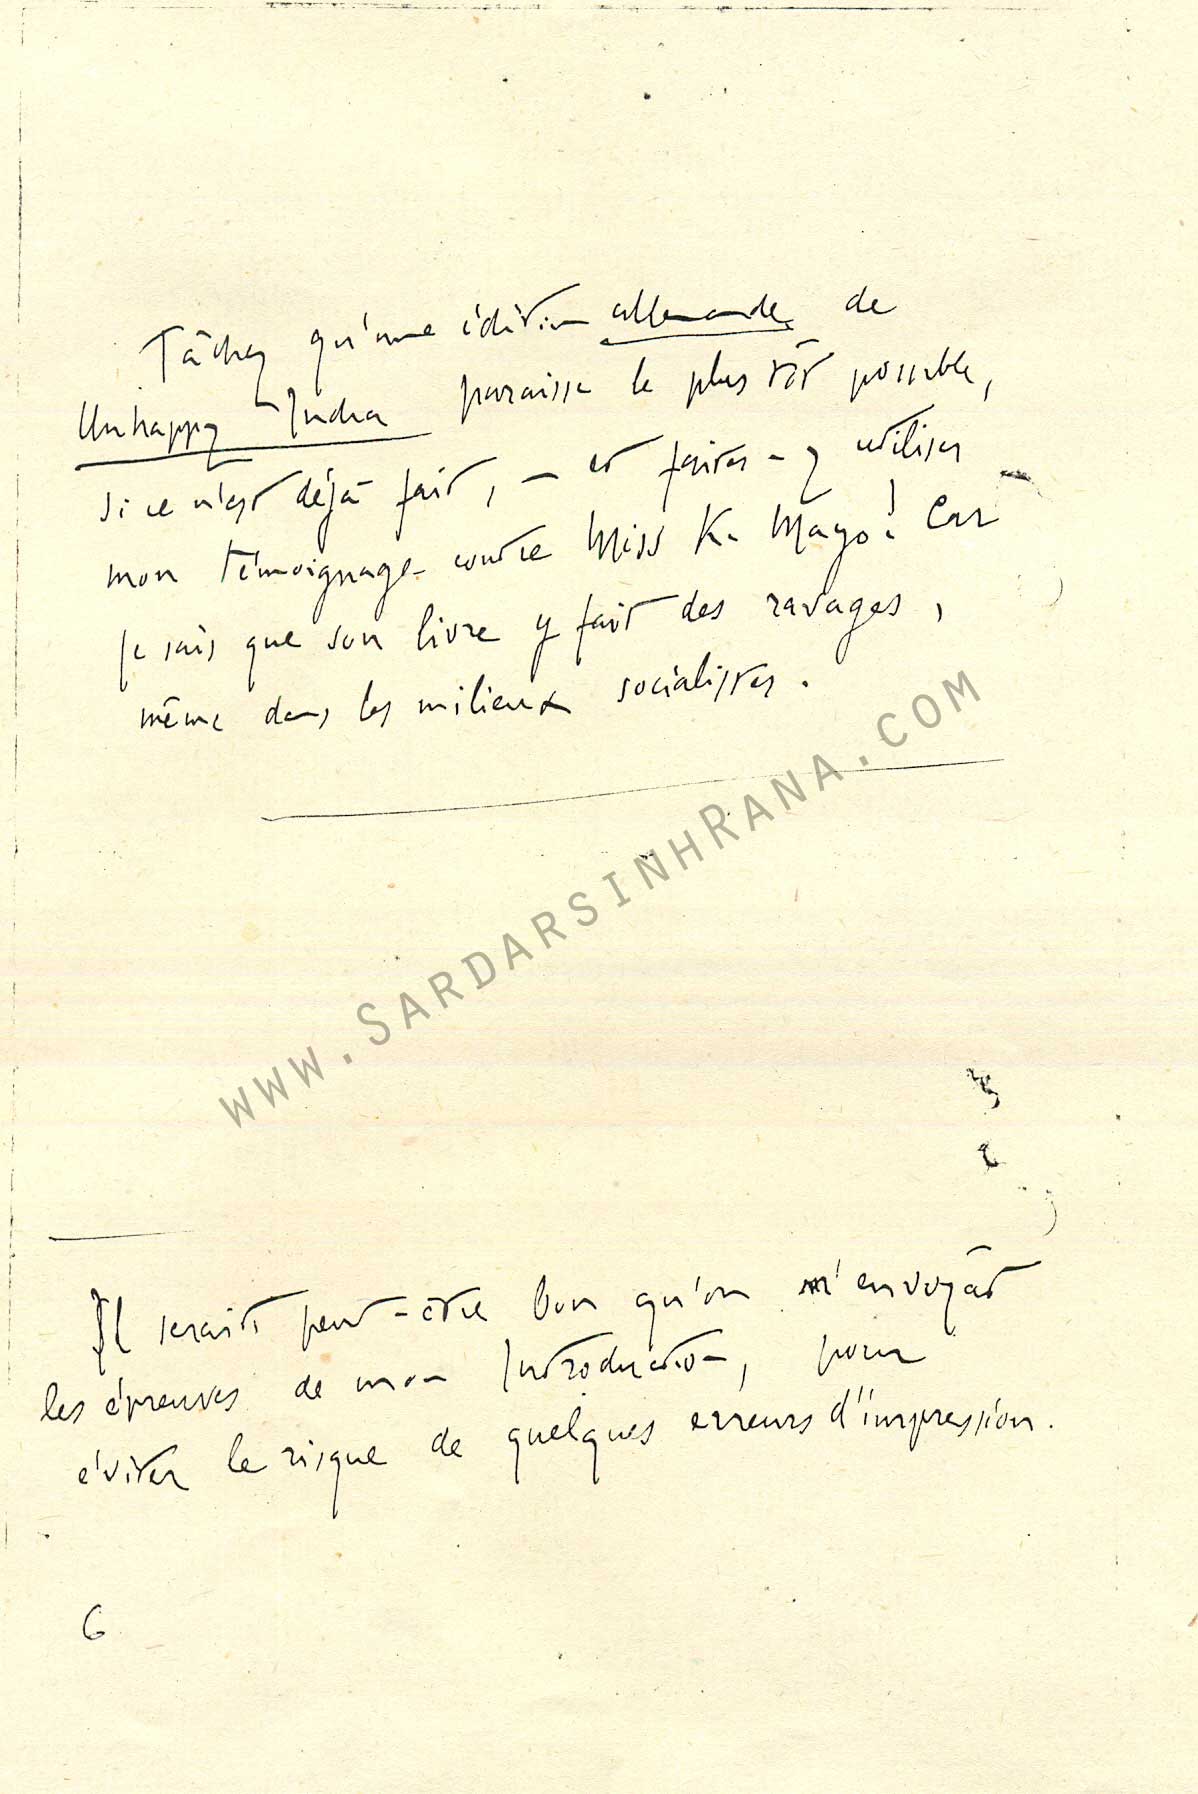 Tâchez qu'une édition allemande de
Unhappy India paraisse le plus tôt possible,
si ce n'est déjà fait, – et faites-y utiliser
mon témoignage contre Miss K. Mayo! Car
je sais que son livre y fait des ravages,
même dans les milieux socialistes.
www.SardarsinhRana.com
Il serait peut-être bon qu'on m'envoyât
les épreuves de mon Introduction, pour
éviter le risque de quelques erreurs d'impression.
6